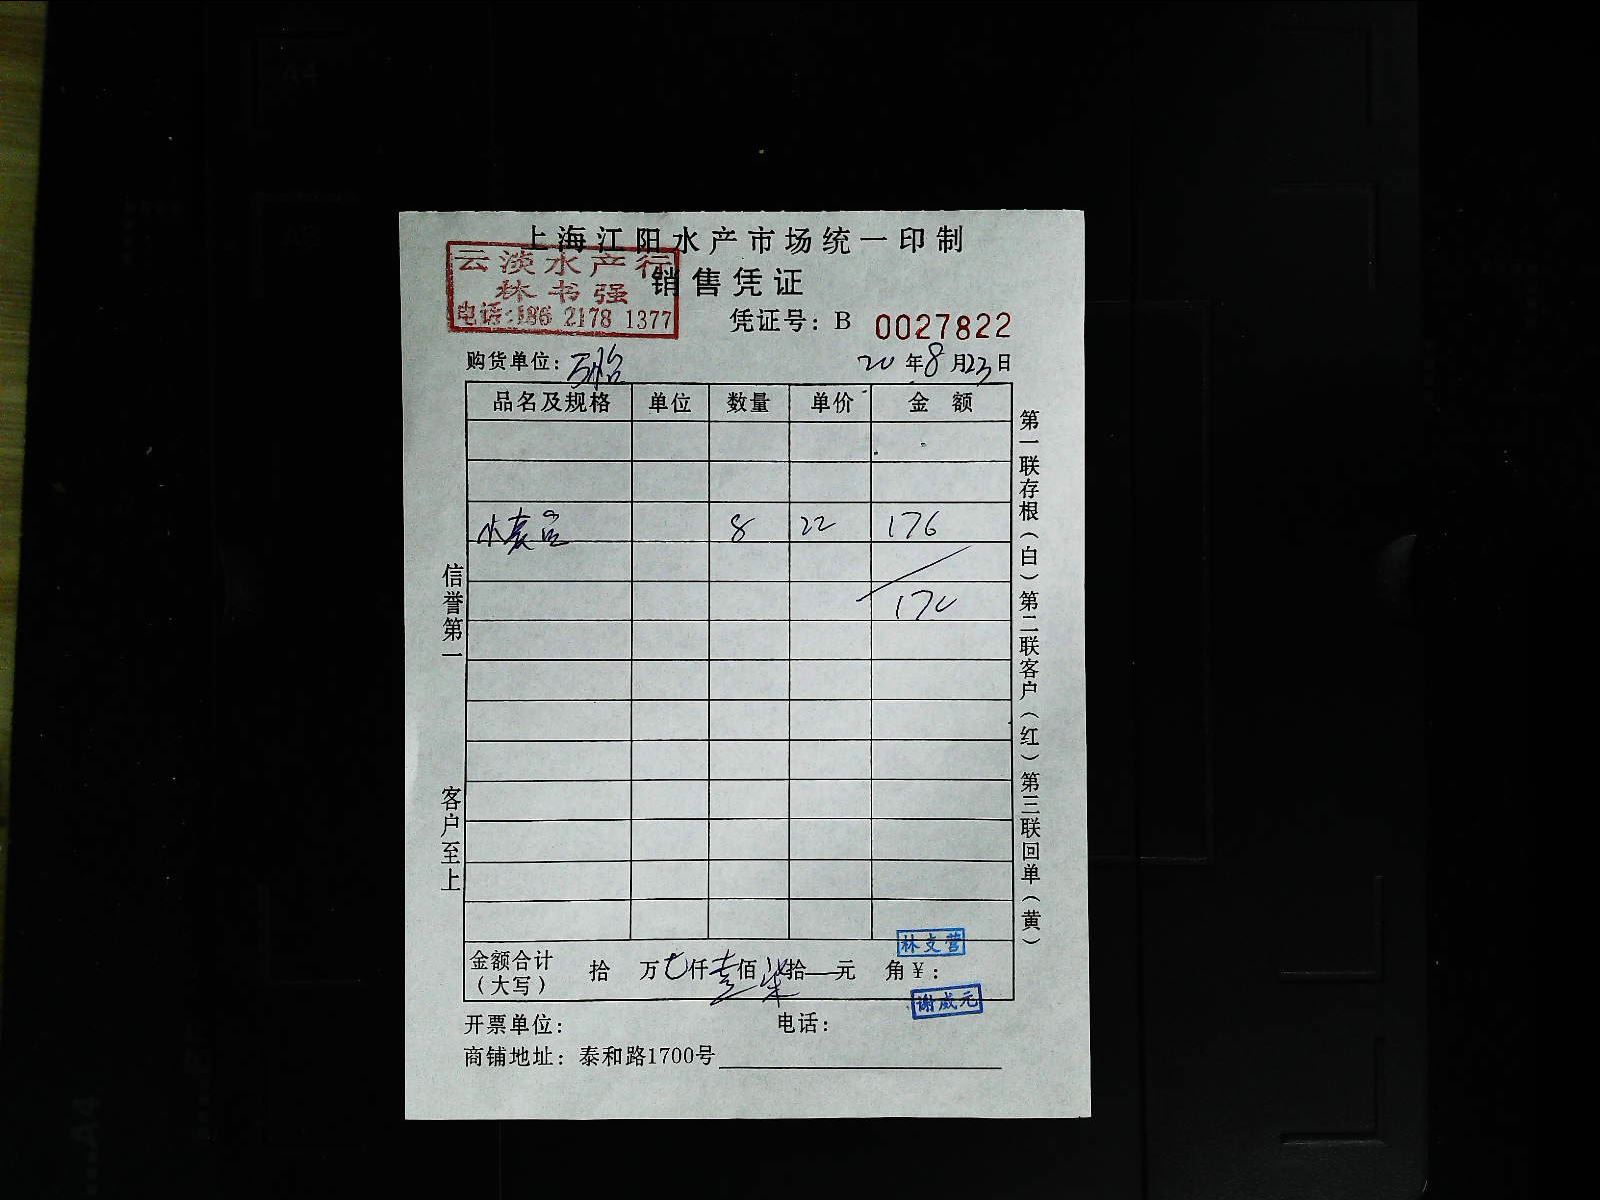 上海江阳水产市场统一印制
云淡水产行
林书强
电话:186 2178 1377
销售凭证
凭证号: B 0027822
购货单位: 万怡
20年8月23日
品名及规格 单位 数量 单价 金额
8 22 176
17
信誉第一
客户至上
第一联存根(白)第二联客户(红)第三联回单(黄)
林支营
金额合计(大写) 拾 万 仟壹佰柒拾 元 角¥:
谢成元
开票单位: 电话:
商铺地址: 泰和路1700号